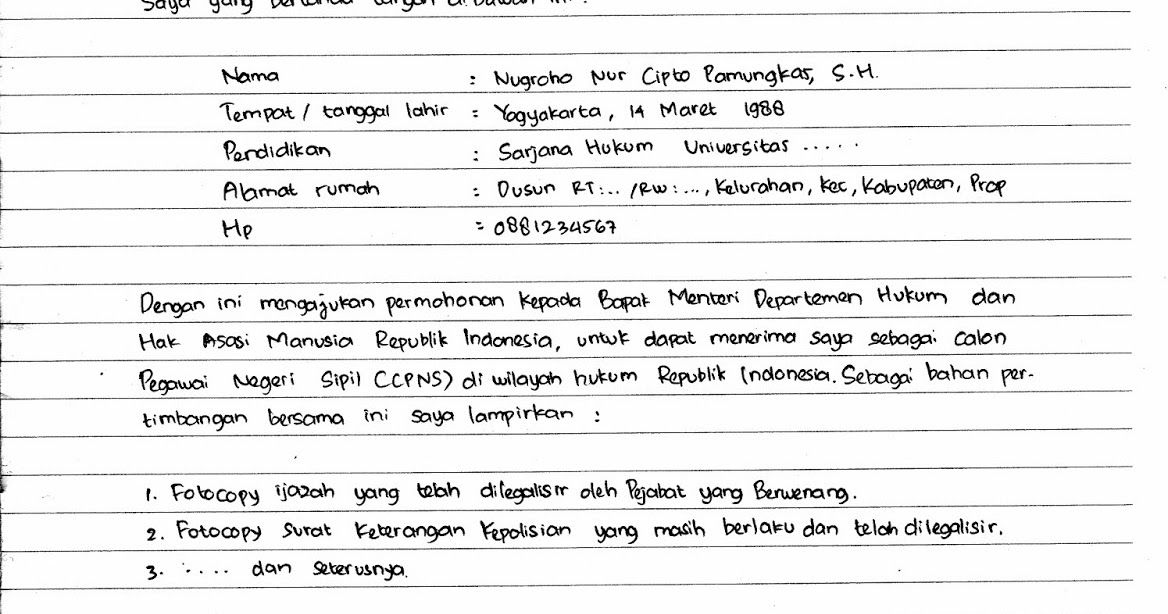 Saya yang bertanda tangan di bawah ini :
Nama : Nugroho Nur Cipto Pamungkas, S.H.
Tempat / tanggal lahir : Yogyakarta, 14 Maret 1988
Pendidikan : Sarjana Hukum Universitas .....
Alamat rumah : Dusun RT:.. /RW:..., Kelurahan, Kec, Kabupaten, Prop
Hp : 0881234567
Dengan ini mengajukan permohonan kepada Bapak Menteri Departemen Hukum dan
Hak Asasi Manusia Republik Indonesia, untuk dapat menerima saya sebagai Calon
Pegawai Negeri Sipil (CPNS) di wilayah hukum Republik Indonesia. Sebagai bahan per-
timbangan bersama ini saya lampirkan :
1. Fotocopy ijazah yang telah dilegalisir oleh Pejabat yang Berwenang.
2. Fotocopy Surat Keterangan Kepolisian yang masih berlaku dan telah dilegalisir.
3. ..... dan seterusnya.